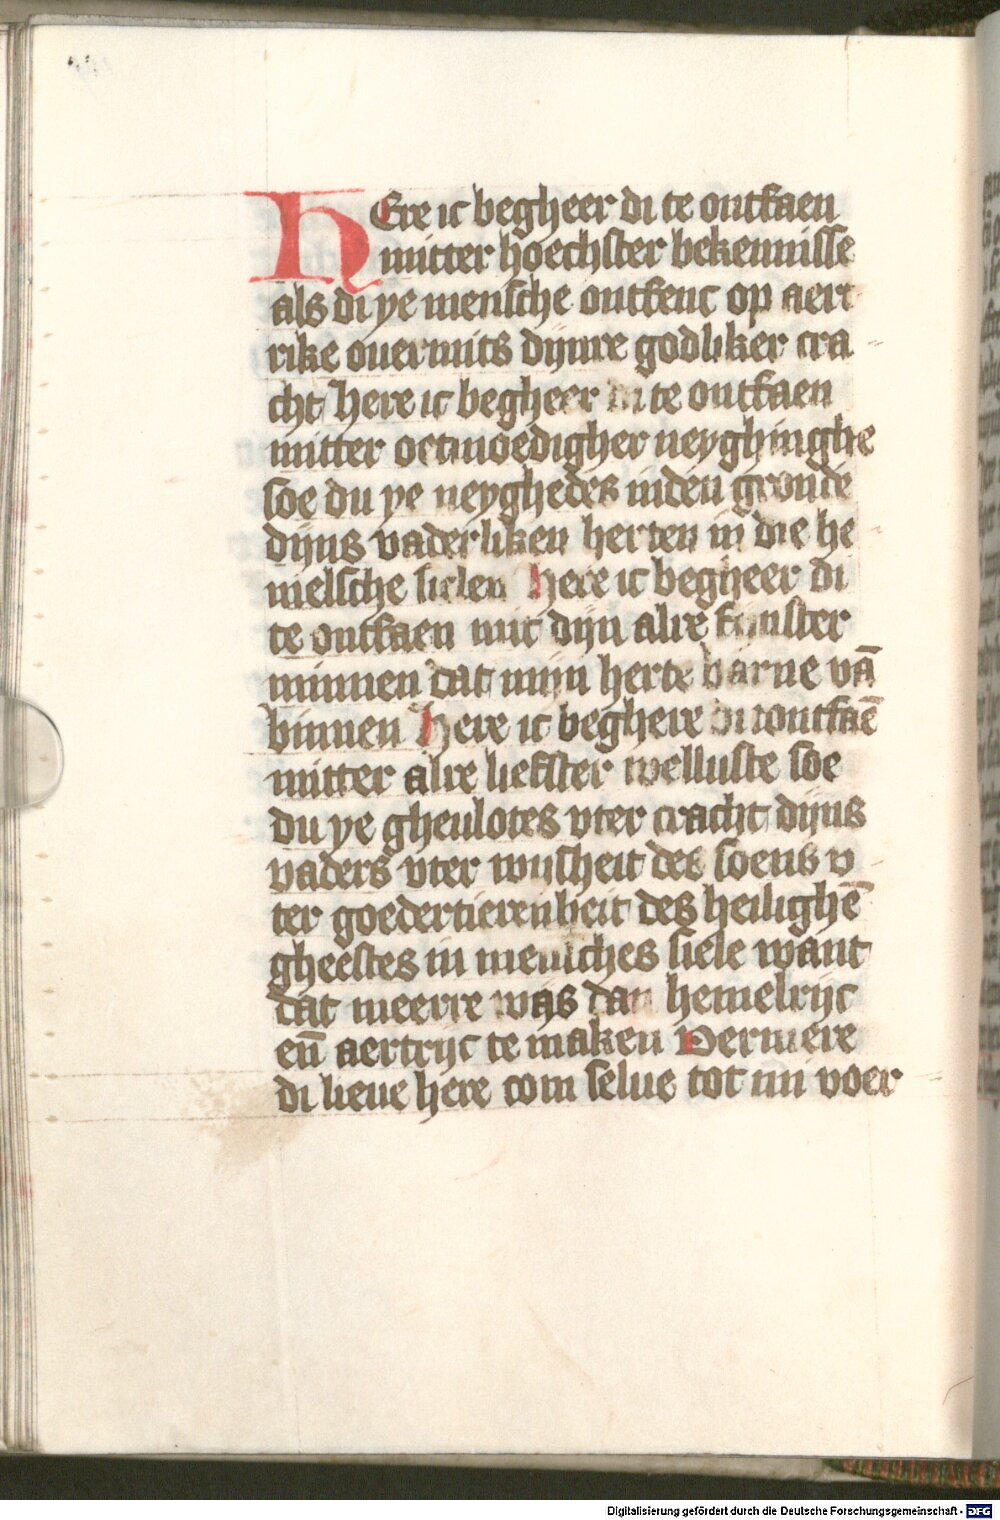 HEre ic begheer di te ontfaen
mitter hoechster bekennisse
als di ye mensche ontfenc op aert
rike ouermits dijnre godliker cra
cht here ic begheer di te ontfaen
mitter oetmoedigher neyghinghe
soe du ye neyghedes inden gronde
dijns vaderliken herten in die he
melsche sielen here ic begheer di
te ontfaen mit dijn alre
minnen dat mijn herte barne vā
binnen here ic beghere di ontfaē
mitter alre liefster wellufte soe
du ye gheulotes vter cracht dijns
vaders vter wijsheit des soens v
ter goedertierenheit des heilighē
gheestes in mensches siele want
dat meerre was dan hemelrijc
eñ aertrijc te maken Verniere
di lieue here com selue tot mi voer
Digitalisierung gefördert durch die Deutsche Forschungsgemeinschaft - DFG